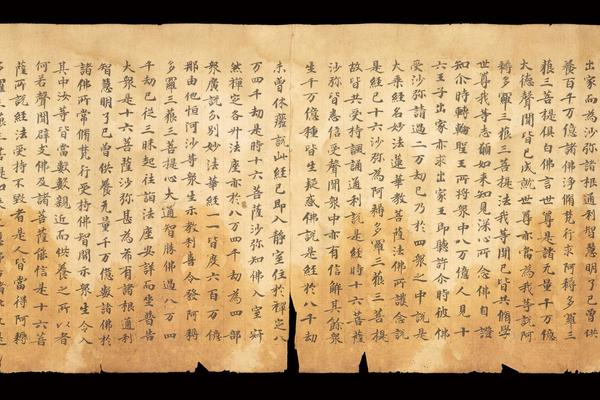 出家而為沙彌諸根通利智慧明了已曾供
養百千万億諸佛淨脩梵行求阿耨多羅三
藐三菩提俱白佛言世尊是諸无量千万億
大德聲聞皆已成就世尊亦當為我等說阿
耨多羅三藐三菩提法我等聞已皆共脩學
世尊我等志願如來知見深心所念佛自證
知尒時轉輪聖王所將衆中八万億人見十
六王子出家亦求出家王即聽許尒時彼佛
受沙彌請過二万劫已乃於四衆之中說是
大乘經名妙法蓮華教菩薩法佛所護念說
是經已十六沙彌為阿耨多羅三藐三菩提
故皆共受持諷誦通利說是經時十六菩薩
沙彌皆悉信受聲聞衆中亦有信解其餘衆
生千万億種皆生疑惑佛說是經於八千劫
未曾休癈說此經已即入静室住於禪定八
万四千劫是時十六菩薩沙彌知佛入室寂
然禪定各升法座亦於八万四千劫為四部
衆廣說分別妙法華經一一皆度六百万億
那由他恒河沙等衆生示教利喜令發阿耨
多羅三藐三菩提心大通智勝佛過八万四
千劫已從三昧起往詣法座安詳而坐普告
大衆是十六菩薩沙彌甚為希有諸根通利
智慧明了已曾供養无量千万億數諸佛於
諸佛所常脩梵行受持佛智開示衆生令入
其中汝等皆當數數親近而供養之所以者
何若聲聞辟支佛及諸菩薩能信是十六菩
薩所說經法受持不毀者是人皆當得阿耨